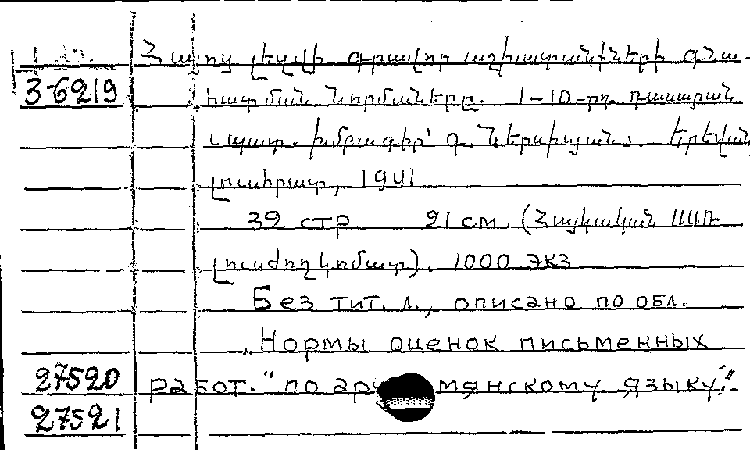 Հայոց լեզվի գրավոր աշխատանքների գնա-
36219 հատման նորմաները. 1-10-րդ դասարան
Պատ. խմբագիր՝ Գ. Ներսիսյան. Երևան,
Լուսհրատ, 1941
39 стр 21 см. (Հայկական ՍՍՌ
Լուսժողկոմատ). 1000 экз
Без тит. л., описано по обл.
„Нормы оценок письменных
27520 работ." по мянскому языку".
27521